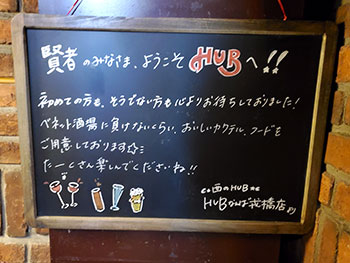 賢者のみなさま、ようこそHUBへ!!
初めての方も、そうでない方も心よりお待ちしておりました!
ベネット酒場に負けないくらい、おいしいカクテル、フードを
ご用意しております☆ミ
たーくさん楽しんでくださいね!!
西のHUB
HUBなんば戎橋店より